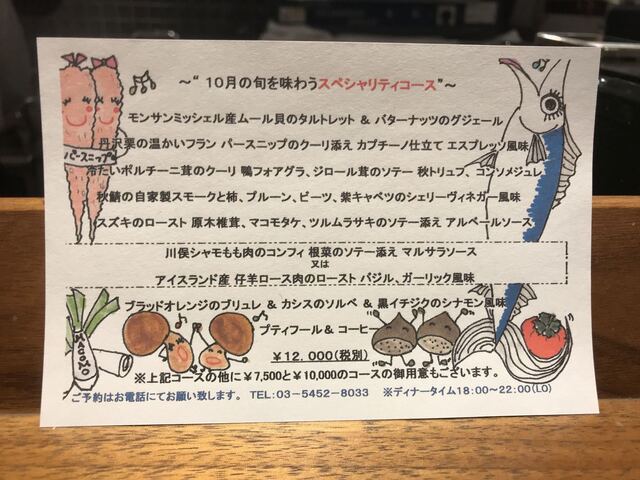 ～“ 10月の旬を味わうスペシャリティコース”～
モンサンミッシェル産ムール貝のタルトレット ＆ バターナッツのグジェール
丹沢栗の温かいフラン パースニップのクーリ添え カプチーノ仕立て エスプレッソ風味
パースニップ
冷たいポルチーニ茸のクーリ 鴨フォアグラ、ジロール茸のソテー 秋トリュフ、コンソメジュレ
秋鯖の自家製スモークと柿、プルーン、ビーツ、紫キャベツのシェリーヴィネガー風味
スズキのロースト 原木椎茸、マコモタケ、ツルムラサキのソテー添え アルベールソース
川俣シャモもも肉のコンフィ 根菜のソテー添え マルサラソース
又は
アイスランド産 仔羊ロース肉のロースト バジル、ガーリック風味
ブラッドオレンジのブリュレ ＆ カシスのソルベ ＆ 黒イチジクのシナモン風味
プティフール＆ コーヒー
￥12,000(税別)
※上記コースの他に￥7,500と￥10,000のコースの御用意もございます。
ご予約はお電話にてお願い致します。 TEL:03-5452-8033 ※ディナータイム18:00～22:00(LO)